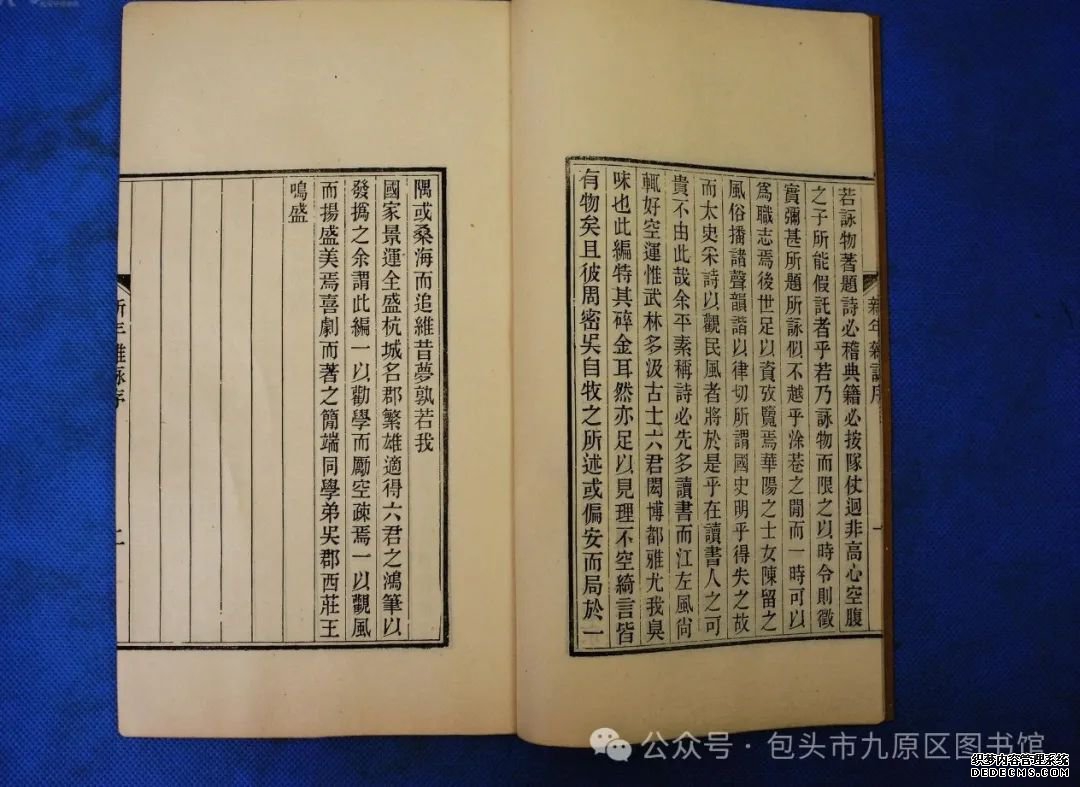 若詠物著題詩必稽典籍必按隊仗迥非高心空腹
之子所能假託者乎若乃詠物而限之以時令則徵
實彌甚所題所詠似不越乎涂巷之閒而一時可以
爲職志焉後世足以資攷覽焉華陽之士女陳留之
風俗播諸聲韻諧以律切所謂國史明乎得失之故
而太史采詩以觀民風者將於是乎在讀書人之可
貴不由此哉余平素稱詩必先多讀書而江左風尚
輒好空運惟武林多汲古士六君閎博都雅尤我臭
味也此編特其碎金耳然亦足以見理不空綺言皆
有物矣且彼周密吳自牧之所述或偏安而局於一
新年雜詠序
一
隅或桑海而追維昔夢孰若我
國家景運全盛杭城名郡繁雄適得六君之鴻筆以
發撝之余謂此編一以勸學而勵空疎焉一以觀風
而揚盛美焉喜劇而著之簡端同學弟吳郡西莊王
鳴盛
新年雜詠序
二
公众号·包头市九原区图书馆
织梦内容管理系统
DEDECMS.COM